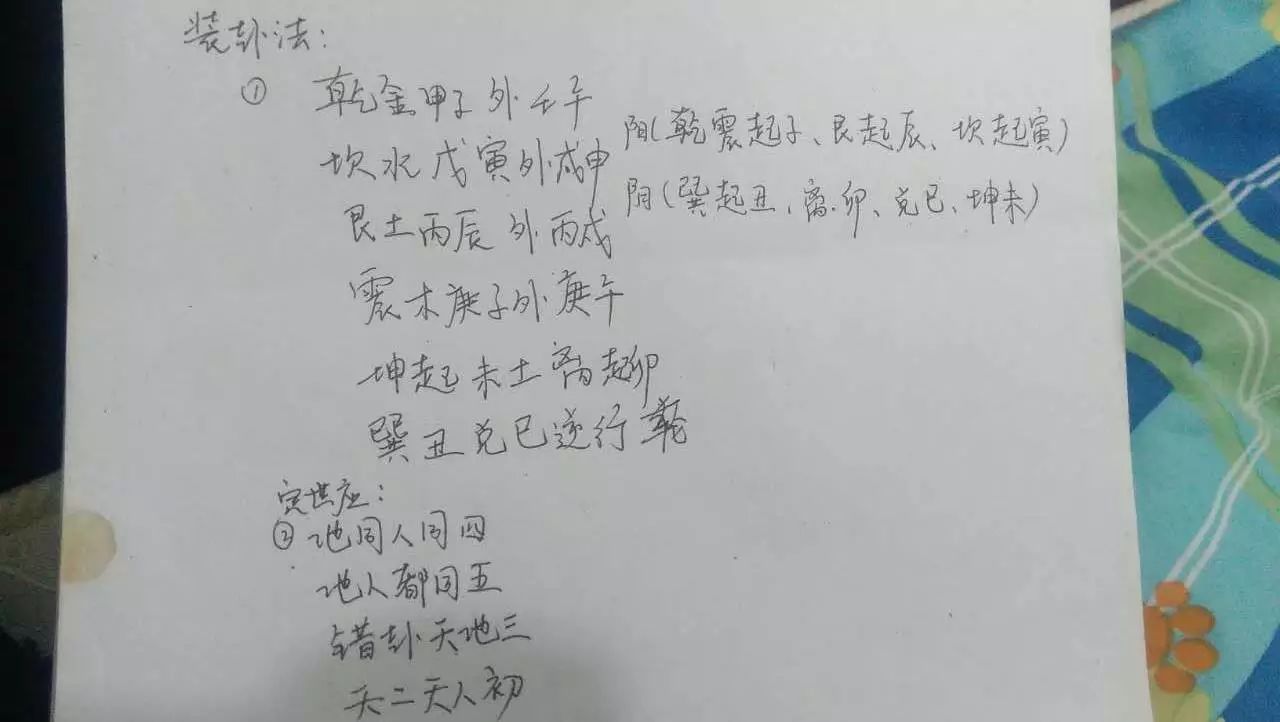 装卦法：
① 乾金甲子外壬午
坎水戊寅外戊申
艮土丙辰外丙戌
震木庚子外庚午
坤起未土离起卯
巽丑兑巳逆行轮
阳(乾震起子、艮起辰、坎起寅)
阴(巽起丑、离卯、兑巳、坤未)
定世应：
② 地同人同四
地人都同五
错卦天地三
天二天人初